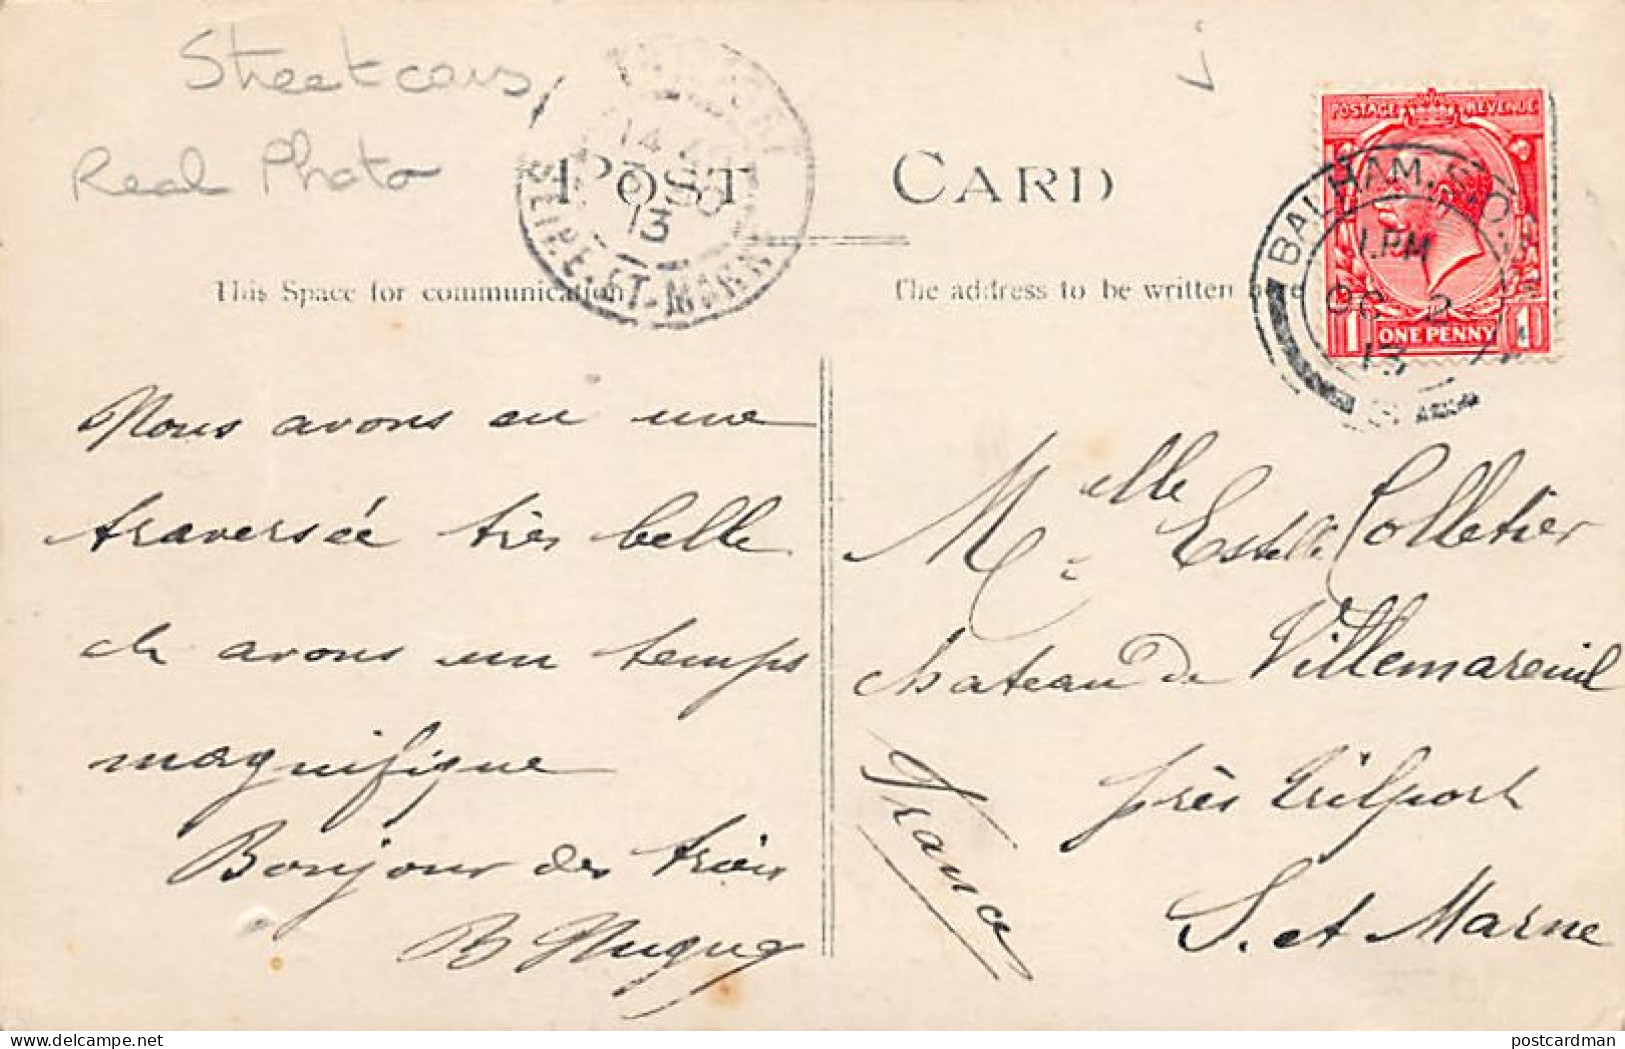 Streetcars
Real Photo
POST CARD
This Space for communication
The address to be written here
14
13
SEINE-ET-MARNE
POSTAGE REVENUE
1 ONE PENNY 1
BALHAM. S.O.
1.PM
OC 2
13
Nous avons eu une
traversée très belle
et avons un temps
magnifique
Bonjour des trois
B
Melle Estelle Colletier
chateau de Villemareuil
près Trilport
S. et Marne
France
postcardman